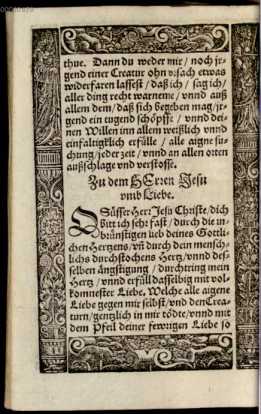 thue. Dann du weder mir / noch jr-
gend einer Creatur ohn vrsach etwas
widerfaren lassest / daß ich / sag ich /
aller ding recht warneme / vnnd auß
allem dem / daß sich begeben mag / jr-
gend ein tugend schöpffe / vnnd dei-
nen Willen inn allem weißlich vnnd
einfaltigklich erfülle / alle aigne su-
chung / jeder zeit / vnnd an allen orten
außschlage vnd verstosse.
Zu dem HErren Jesu
vmb Liebe.
O Süsser Herr Jesu Christe / dich
bitt ich sehr fast / durch die in-
brünstigen lieb deines Göttli-
chen Hertzens / vñ durch dein mensch-
lichs durchstochens Hertz / vnnd des-
selben ängstigung / durchtring mein
Hertz / vnnd erfüll dasselbig mit vol-
komnester Liebe. Welche alle aigene
Liebe gegen mir selbst / vnd den Crea-
turn / gentzlich in mir tödte / vnnd mit
dem Pfeil deiner fewrigen Liebe so